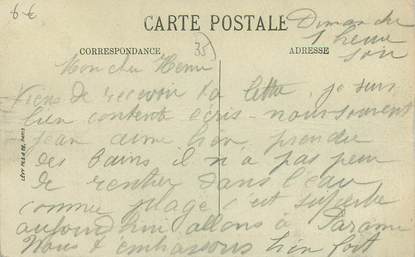 6 €
CARTE POSTALE
Dimanche
1 heure
soir
CORRESPONDANCE
35
ADRESSE
Mon cher Henri
Viens de recevoir ta lettre, je suis
bien contente écris-nous souvent
Jean aime bien prendre
des bains il n'a pas peur
de rentrer dans l'eau
comme plage c'est superbe
aujourd'hui allons à Paramé
Nous t'embrassons bien fort
LÉVY FILS & CIE, PARIS